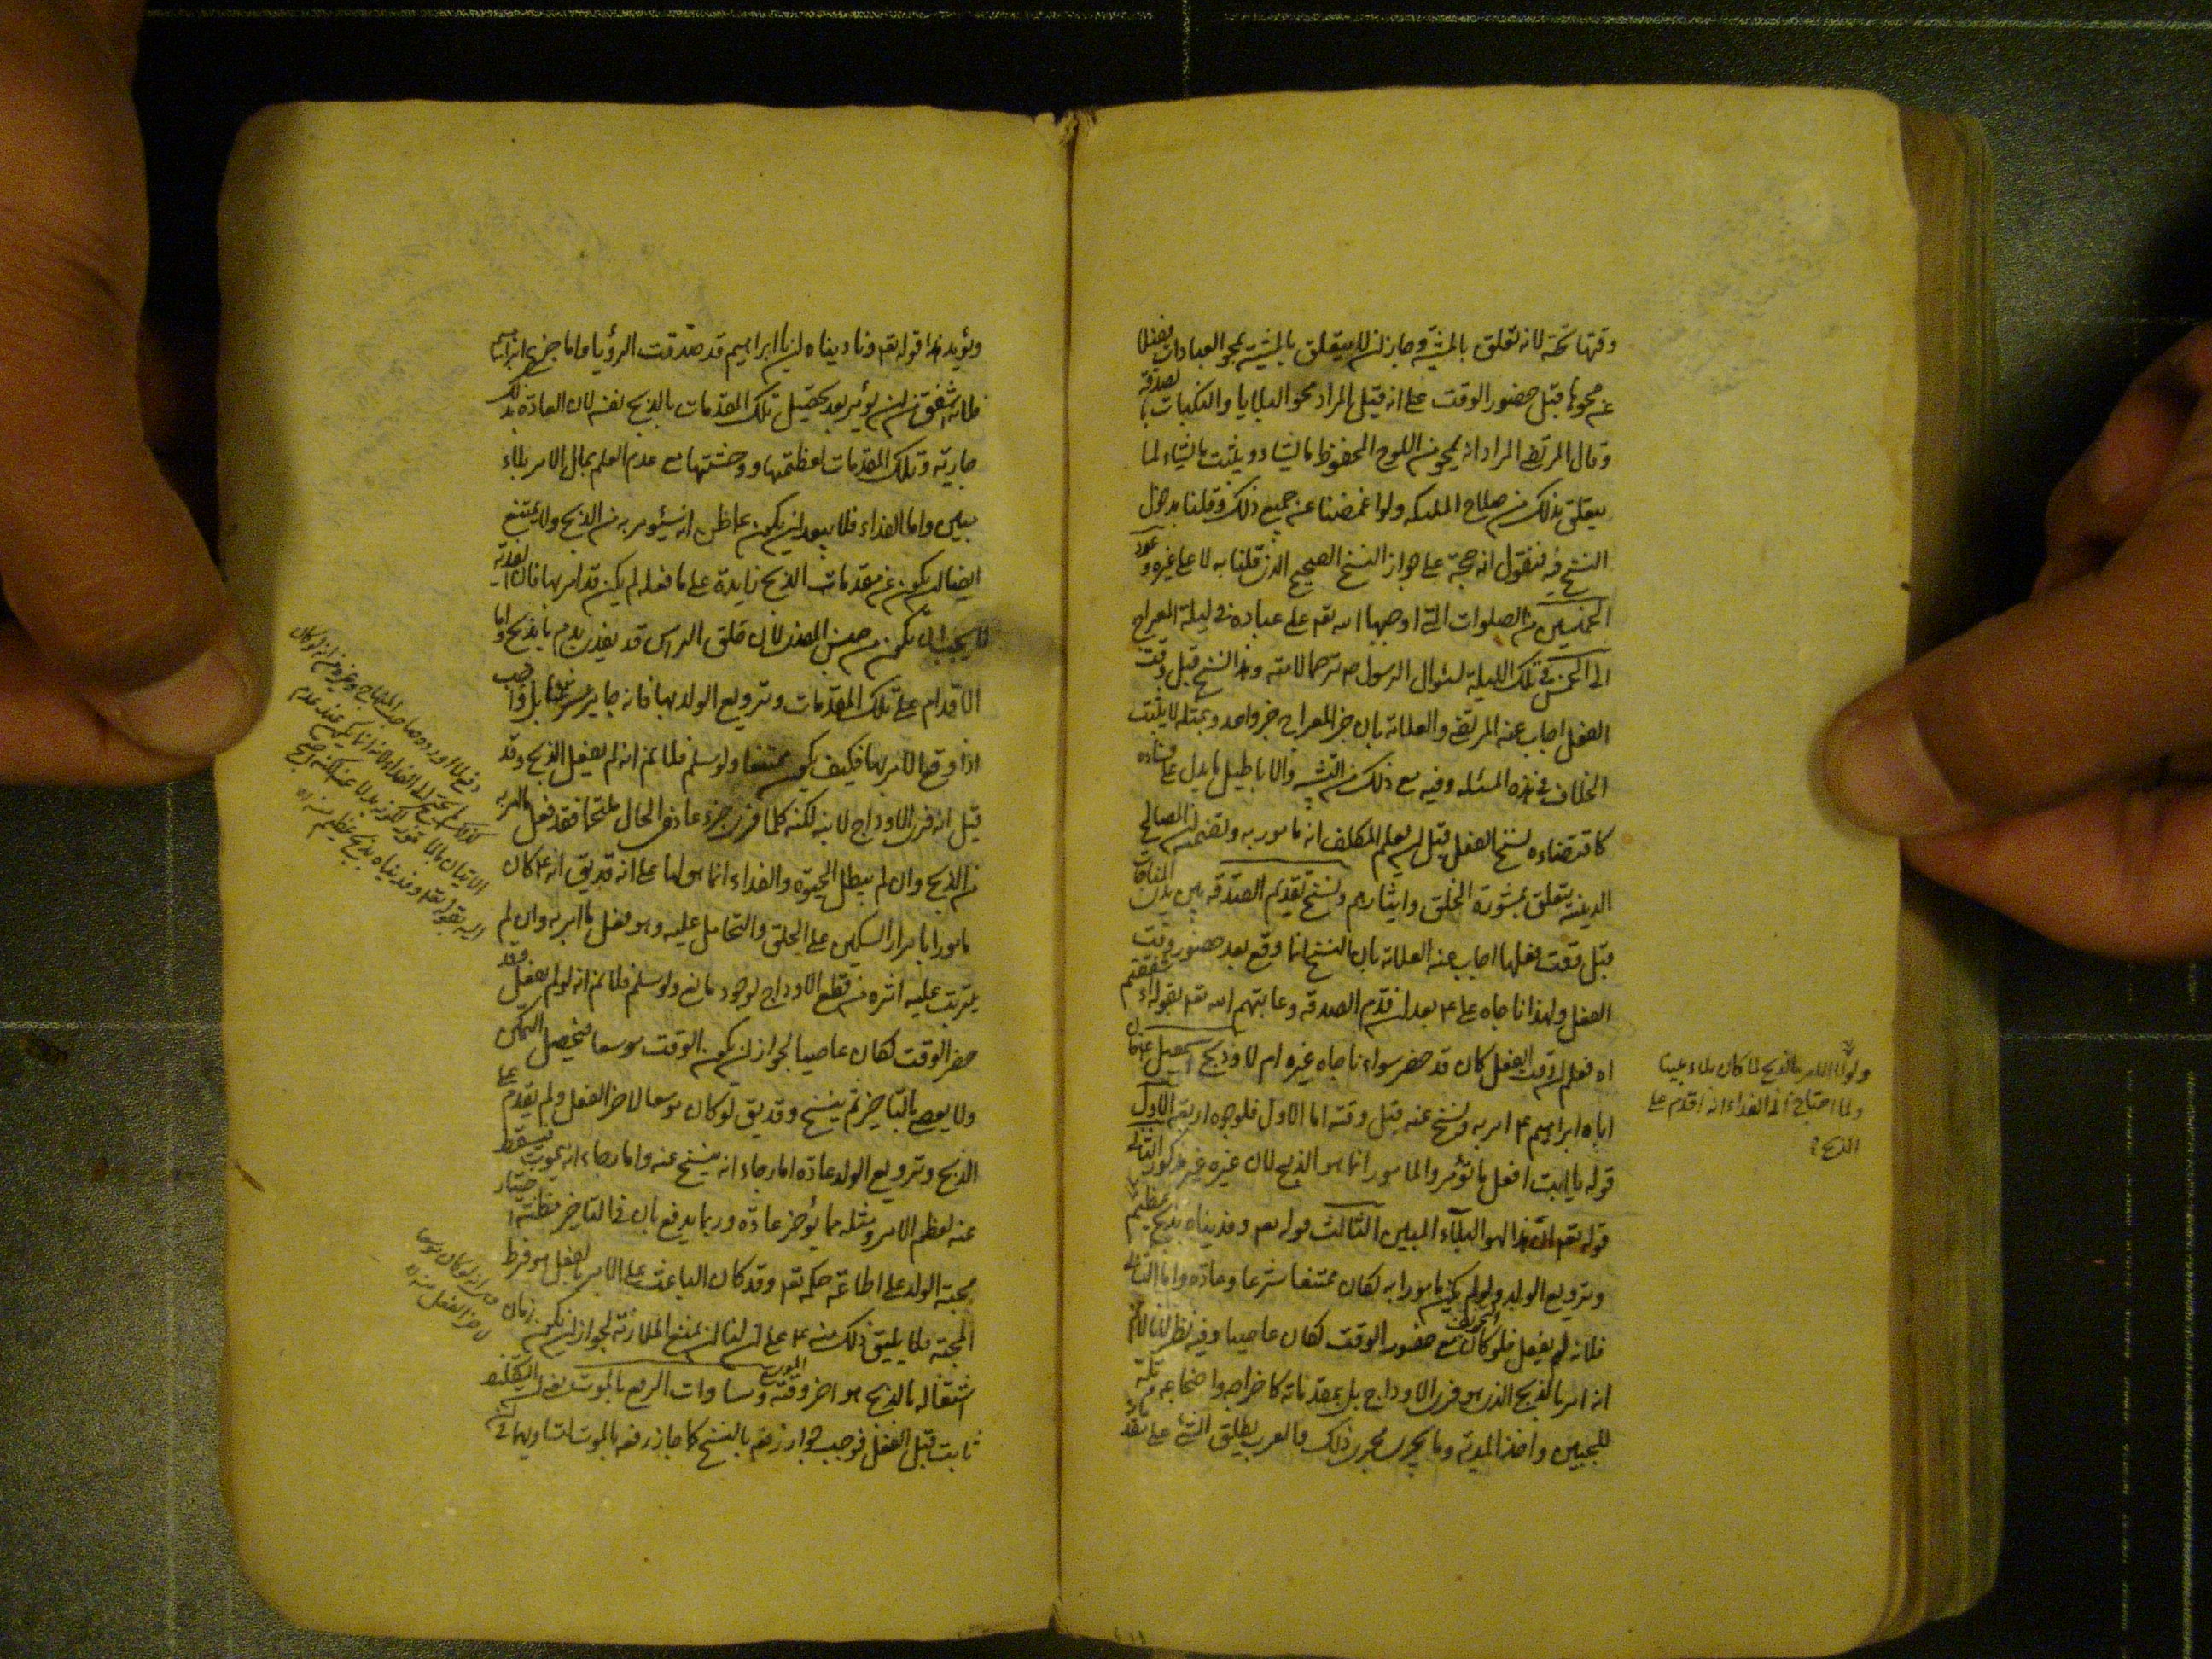 وقتها لكنه لانه تعلق بالمشية وجاز ان لا يتعلق بالمشية محو العبادات فضلا
عن محوها قبل حضور الوقت على انه قيل المراد محو البلايا والنكبات بالصدقة
وقال المرتضى المراد انه يمحو من اللوح المحفوظ ما يشاء ويثبت ما يشاء لما
يتعلق بذلك من صلاح الملئكة ولو اغمضنا عن جميع ذلك وقلنا بدخول
النسخ فيه فنقول انه حجة على جواز النسخ الصحيح الذي قلنا به لا على غيره وعود
الخمسين من الصلوات التي اوجبها الله تعم على عباده في ليلة المعراج
الى الخمس في تلك الليلة لسؤال الرسول ص ترحما لامته وهذا النسخ قبل وقت
الفعل اجاب عنه المرتضى والعلامة بان خبر المعراج خبر واحد وبمثله لا يثبت
الخلاف في هذه المسئلة وفيه مع ذلك من التشبيه والاباطيل ما يدل على فساده
كاقتضاءه نسخ الفعل قبل ان يعلم المكلف انه مامور به وتضمنه ان المصالح
الدينية يتعلق بمشورة الخلق وايثارهم ونسخ تقديم الصدقة بين يدي المناجاة
قبل وقت فعلها اجاب عنه العلامة بان النسخ انما وقع بعد حضور وقت
الفعل ولهذا ناجاه على ع بعد ان قدم الصدقة وعاتبهم الله تعم بقوله ءاشفقتم
اه فعلم ان وقت الفعل كان قد حضر سواء ناجاه غيره ام لا وذبح اسمعيل ع فان
اباه ابراهيم ع امر به ونسخ عنه قبل وقته اما الاول فلوجوه اربعة الاول
قوله يا ابت افعل ما تؤمر والمامور انما هو الذبح لان غيره غير مذكور الثاني
قوله تعم ان هذا لهو البلاء المبين الثالث قوله تعم وفديناه بذبح عظيم
وترويع الولد ولو لم يكن مامورا به لكان ممتنعا شرعا وعادة واما الثاني
فلانه لم يفعل فلو كان مع حضور الوقت لكان عاصيا وفيه نظر لانا لانم
انه امر بالذبح الذي هو فرى الاوداج بل بمقدماته كاخراجه واضجاعه وتله
للجبين واخذ المدية وما يجرى مجرى ذلك والعرب يطلق الشئ على مقدماته
ولولا الامر بالذبح لما كان بلاء مبينا
ولما احتاج الى الفداء انه اقدم على
الذبح
ويؤيد هذا قوله تعم وناديناه ان يا ابراهيم قد صدقت الرؤيا واما جزع ابراهيم
فلانه اشفق من ان يؤمر بعد تحصيل تلك المقدمات بالذبح نفسه لان العادة بذلك
جارية وتلك المقدمات لعظمتها ووحشتها مع عدم العلم بمآل الامر بلاء
مبين واما الفداء فلا يبعد ان يكون عما ظن انه سيؤمر به من الذبح ولا يمتنع
ايضا ان يكون عن مقدمات الذبح زايدة على ما فعله لم يكن قد امر بها فان الفدية
لا يجب ان تكون من جنس المفدى لان حلق الراس قد يفدى بدم ما يذبح واما
الاقدام على تلك المقدمات وترويع الولد بها فانه جايز شرعا بل واجب
اذا وقع الامر بها فكيف يكون ممتنعا ولو سلم فلا نم انه لم يفعل الذبح وقد
قيل انه فرى الاوداج لابنه لكنه كلما فرى جزء عاد في الحال ملتحما فقد فعل ما امر به
من الذبح وان لم يبطل الحيوة والفداء انما هو لها على انه قد يق انه ع كان
مامورا بامرار السكين على الحلق والتحامل عليه وهو فعل ما امر به وان لم
يترتب عليه اثره من قطع الاوداج لوجود مانع ولو سلم فلا نم انه لو لم يفعل وقد
حضر الوقت لكان عاصيا لجواز ان يكون الوقت موسعا فيحصل التمكن
ولا يعصى بالتاخير ثم ينسخ وقد يق لو كان موسعا لاخر الفعل ولم يقدم على
الذبح وترويع الولد عادة اما رجاء انه ينسخ عنه واما رجاء انه يموت فيسقط
عنه لعظم الامر ومثله مما يؤخر عادة وربما يدفع بان في التاخير مظنة اختيار
محبة الولد على اطاعة حكمه تعم وقد كان الباعث على الامر بالفعل هو فرط
المحبة فلا يليق ذلك منه ع على ان لنا ان نمنع الملازمة لجواز ان يكون زمان
اشتغاله بالذبح هو اخر وقته الموسع ومساوات الرفع بالموت يعنى ان التكليف
ثابت قبل الفعل فوجب جواز رفعه بالنسخ كما جاز رفعه بالموت لتساويهما في